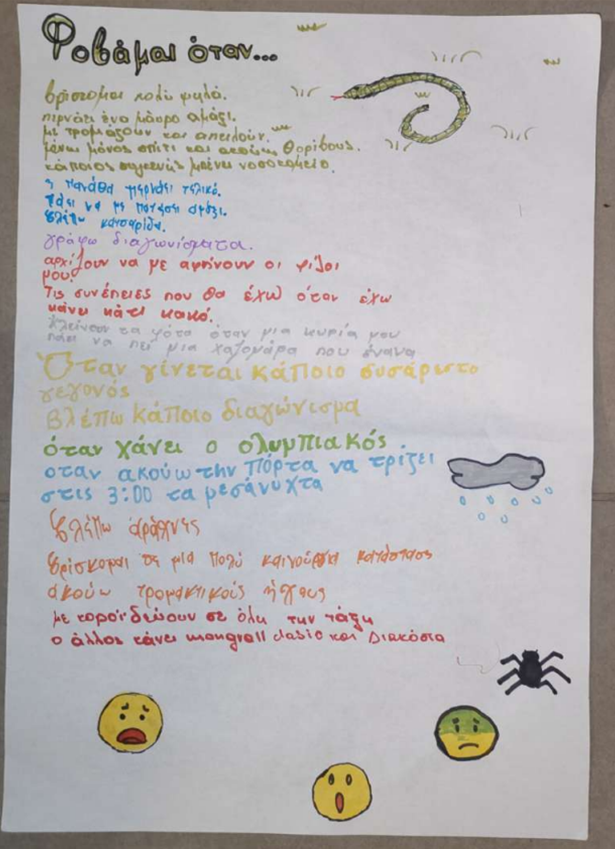 Φοβάμαι όταν...
βρίσκομαι πολύ ψηλά.
περνάει ένα μαύρο αμάξι.
με τρομάζουν και απειλούν.
μένω μόνος σπίτι και ακούω θορίβους.
κάποιος συγκενής μπαίνει νοσοκομείο.
η παναθα περνάει τελικό.
πάει να με πατήσει αμάξι.
βλέπω κατσαρίδα.
γράφω διαγωνίσματα.
αρχίζουν να με αφήνουν οι φίλοι
μου.
Τις συνέπειες που θα έχω όταν έχω
κάνει κάτι κακό.
κλείνουν τα φότα όταν μια κυρία μου
πάει να πεί μια χαζομάρα που έκανα
Όταν γίνεται κάποιο δυσάρεστο
γεγονός
βλέπω κάποιο διαγώνισμα
όταν χάνει ο ολυμπιακός.
οταν ακούω την πόρτα να τρίζει
στις 3:00 τα μεσάνυχτα
βλέπω αράχνες
βρίσκομαι σε μία πολύ καινούργια κατάσταση
ακούω τρομακτικούς ήχους
με κοροϊδεύουν σε όλη την τάξη
ο άλλος κάνει clasic και Διακόσια